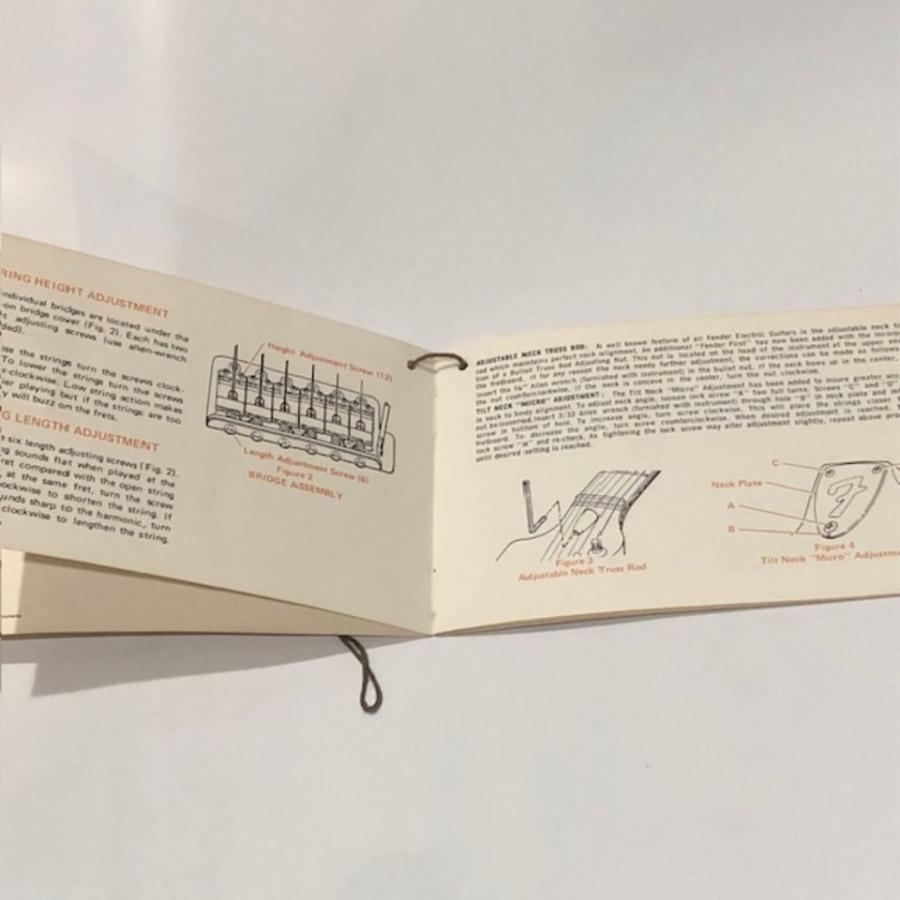 RING HEIGHT ADJUSTMENT
individual bridges are located under the
-on bridge cover (Fig. 2). Each has two
adjusting screws (use allen-wrench
ise the strings turn the screws clock-
To lower the strings turn the screws
r-clockwise. Low string action makes
ier playing but if the strings are too
y will buzz on the frets.
G LENGTH ADJUSTMENT
six length adjusting screws (Fig. 2).
ng sounds flat when played at the
ret compared with the open string
, at the same fret, turn the screw
ockwise to shorten the string. If
unds sharp to the harmonic, turn
clockwise to lengthen the string.
Height Adjustment Screw (12)
Length Adjustment Screw (6)
Figure 2
BRIDGE ASSEMBLY
ADJUSTABLE NECK TRUSS ROD: A well known feature of all Fender Electric Guitars is the adjustable neck
rod which maintains perfect neck alignment. An additional "Fender First" has now been added with the
tion of a Bullet Truss Rod Adjusting Nut. This nut is located on the head of the instrument at the upper
the fretboard. If for any reason the neck needs further adjustment, the corrections can be made as
insert the Allen wrench (furnished with instrument) in the bullet nut, if the neck bows up in the center,
the nut counterclockwise. If the neck is concave in the center, turn the nut clockwise.
TILT NECK "MICRO" ADJUSTMENT: The Tilt Neck "Micro" Adjustment has been added to insure greater
in neck to body alignment. To adjust neck angle, loosen lock screw "A" two full turns. Screws "C" and "D"
not be loosened. Insert 3/32 Allen wrench (furnished with instrument) through hole "B" in neck plate and
screw in bottom of hole. To increase angle, turn screw clockwise. This will place the strings closer
fretboard. To decrease the angle, turn screw counterclockwise. When desired adjustment is reached,
lock screw "A" and re-check. As tightening the lock screw may alter adjustment slightly, repeat above
until desired setting is reached.
Figure 3
Adjustable Neck Truss Rod
C
Neck Plate
A
B
F
Figure 4
Tilt Neck "Micro" Adjustme